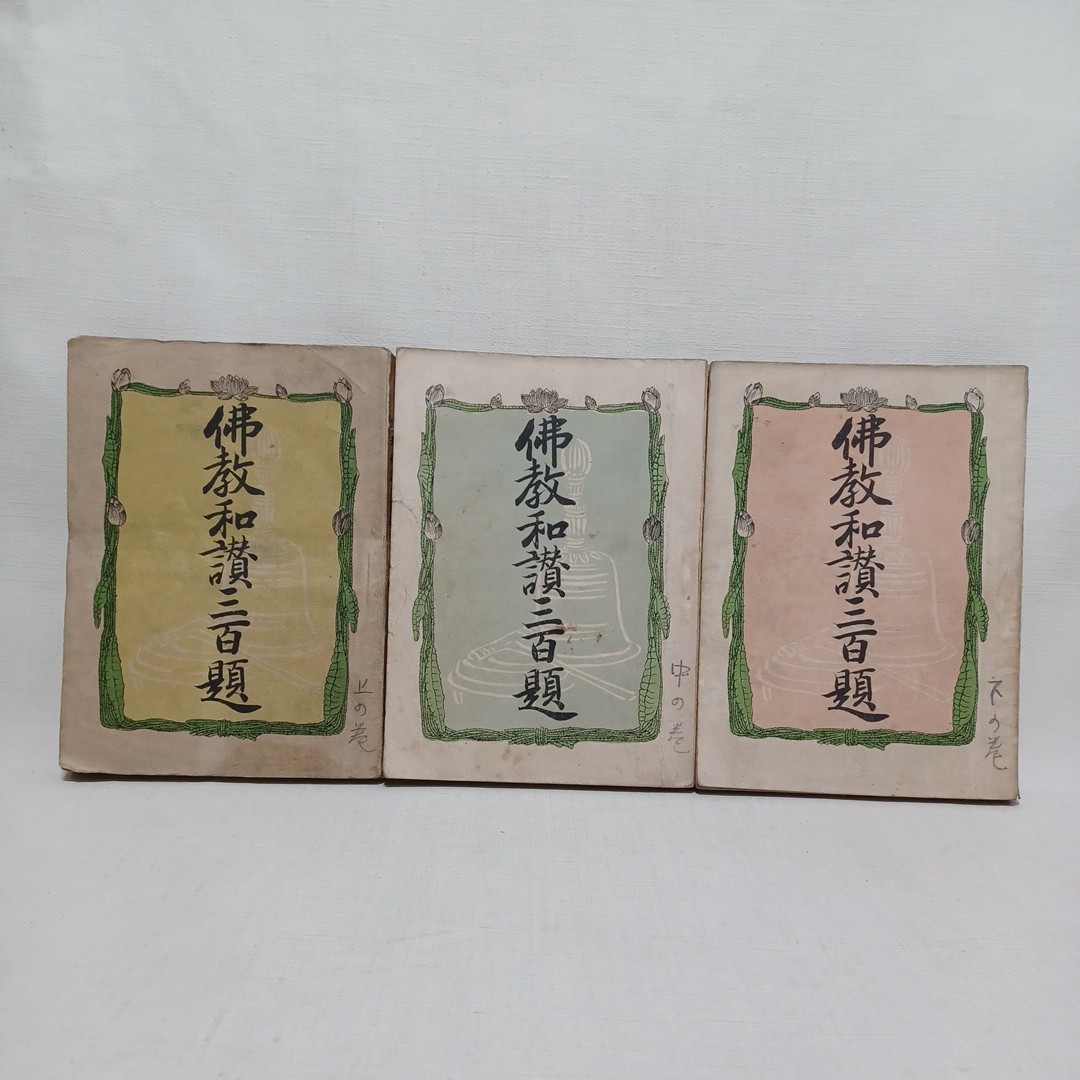 佛教和讃三百題
上の巻
佛教和讃三百題
中の巻
佛教和讃三百題
下の巻